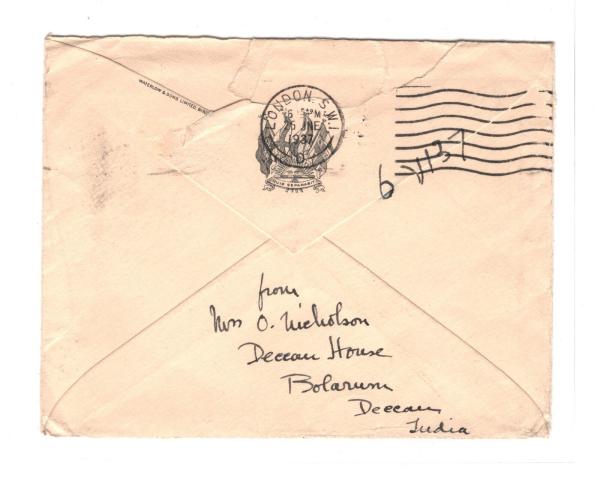 WATERLOW & SONS LIMITED,
LONDON. S.W.1
5 15 PM
JNE
1937
6 VI 37
from
Mrs O. Nicholson
Deccan House
Bolarum
Deccan
India